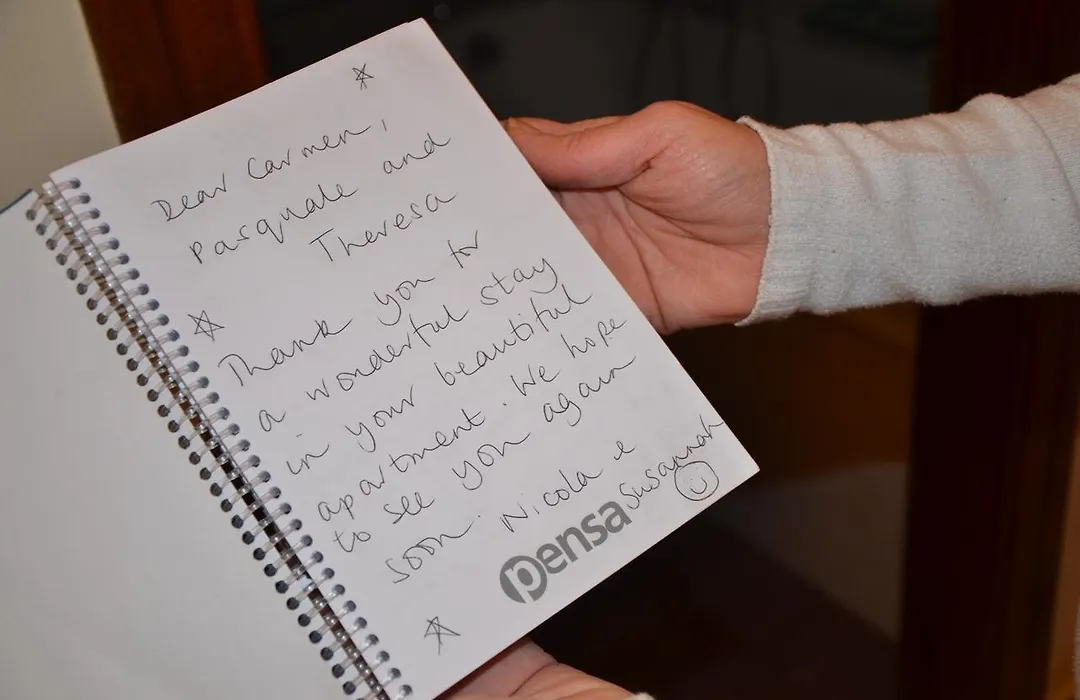 Dear Carmen,
Pasquale and
Theresa
Thank you for
a wonderful stay
in your beautiful
apartment. We hope
to see you again
soon. Nicola e Susannah
pensa